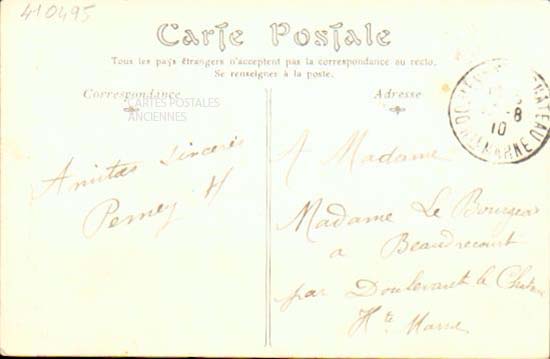 410495
Carte Postale
Tous les pays étrangers n'acceptent pas la correspondance au recto.
Se renseigner à la poste.
Correspondance
Adresse
CARTES POSTALES
ANCIENNES
Amitiés sincères
Perney H
A Madame
Madame Le Bourgeois
a Beaudrecourt
par Doulevant le Chateau
Hte Marne
CHATEAU
8
10
MARNE